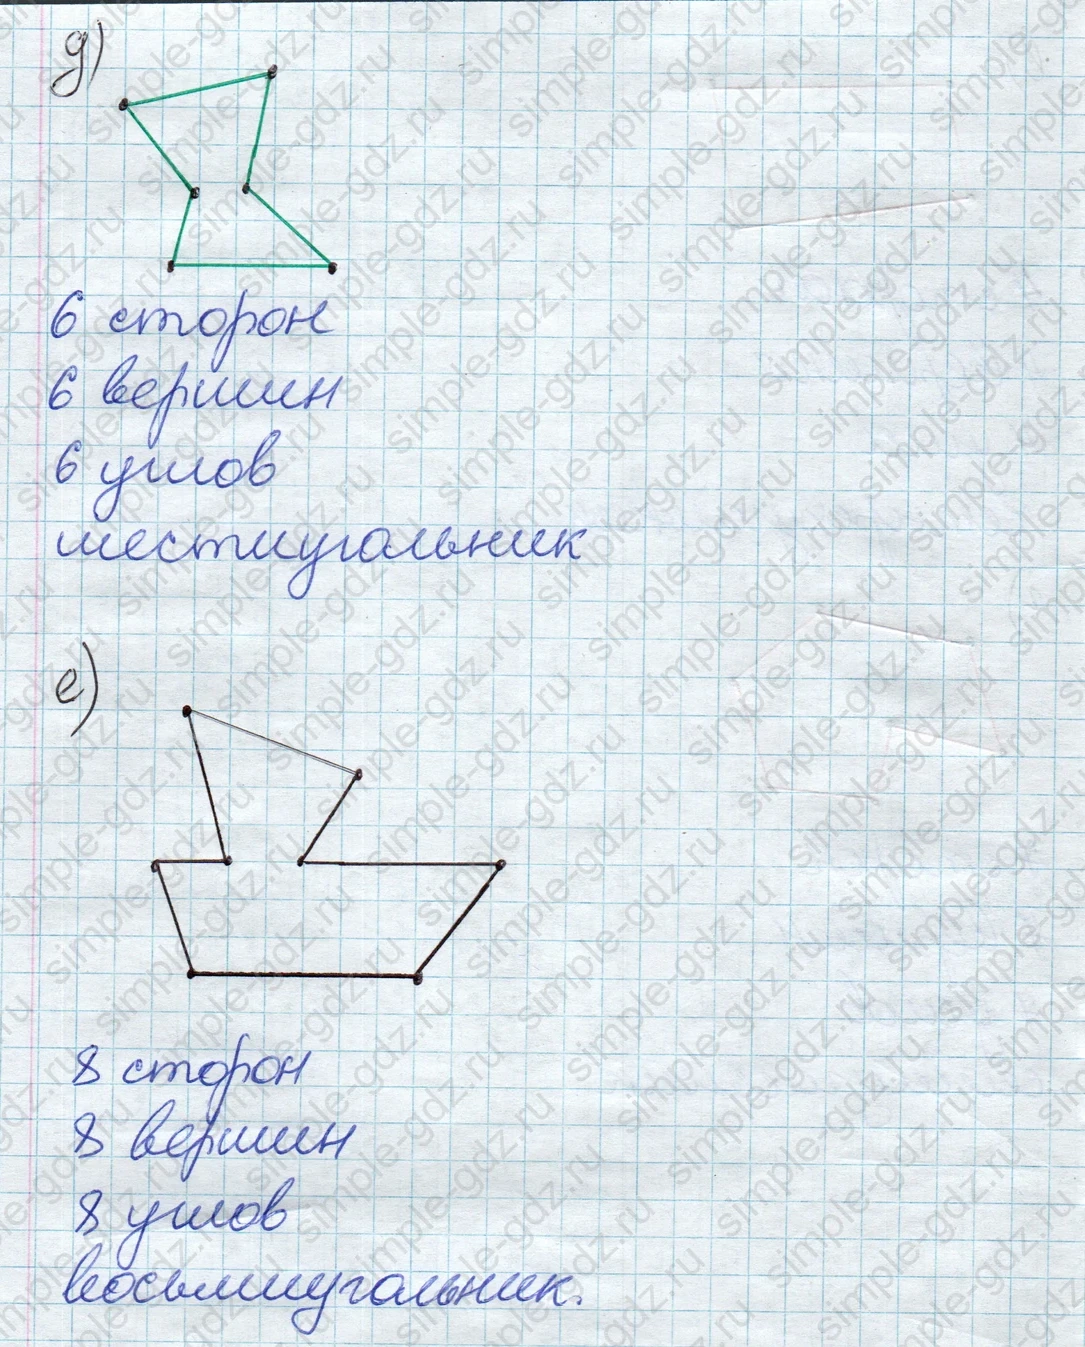 д)
6 сторон
6 вершин
6 углов
шестиугольник
е)
8 сторон
8 вершин
8 углов
восьмиугольник.
simple-gdz.ru